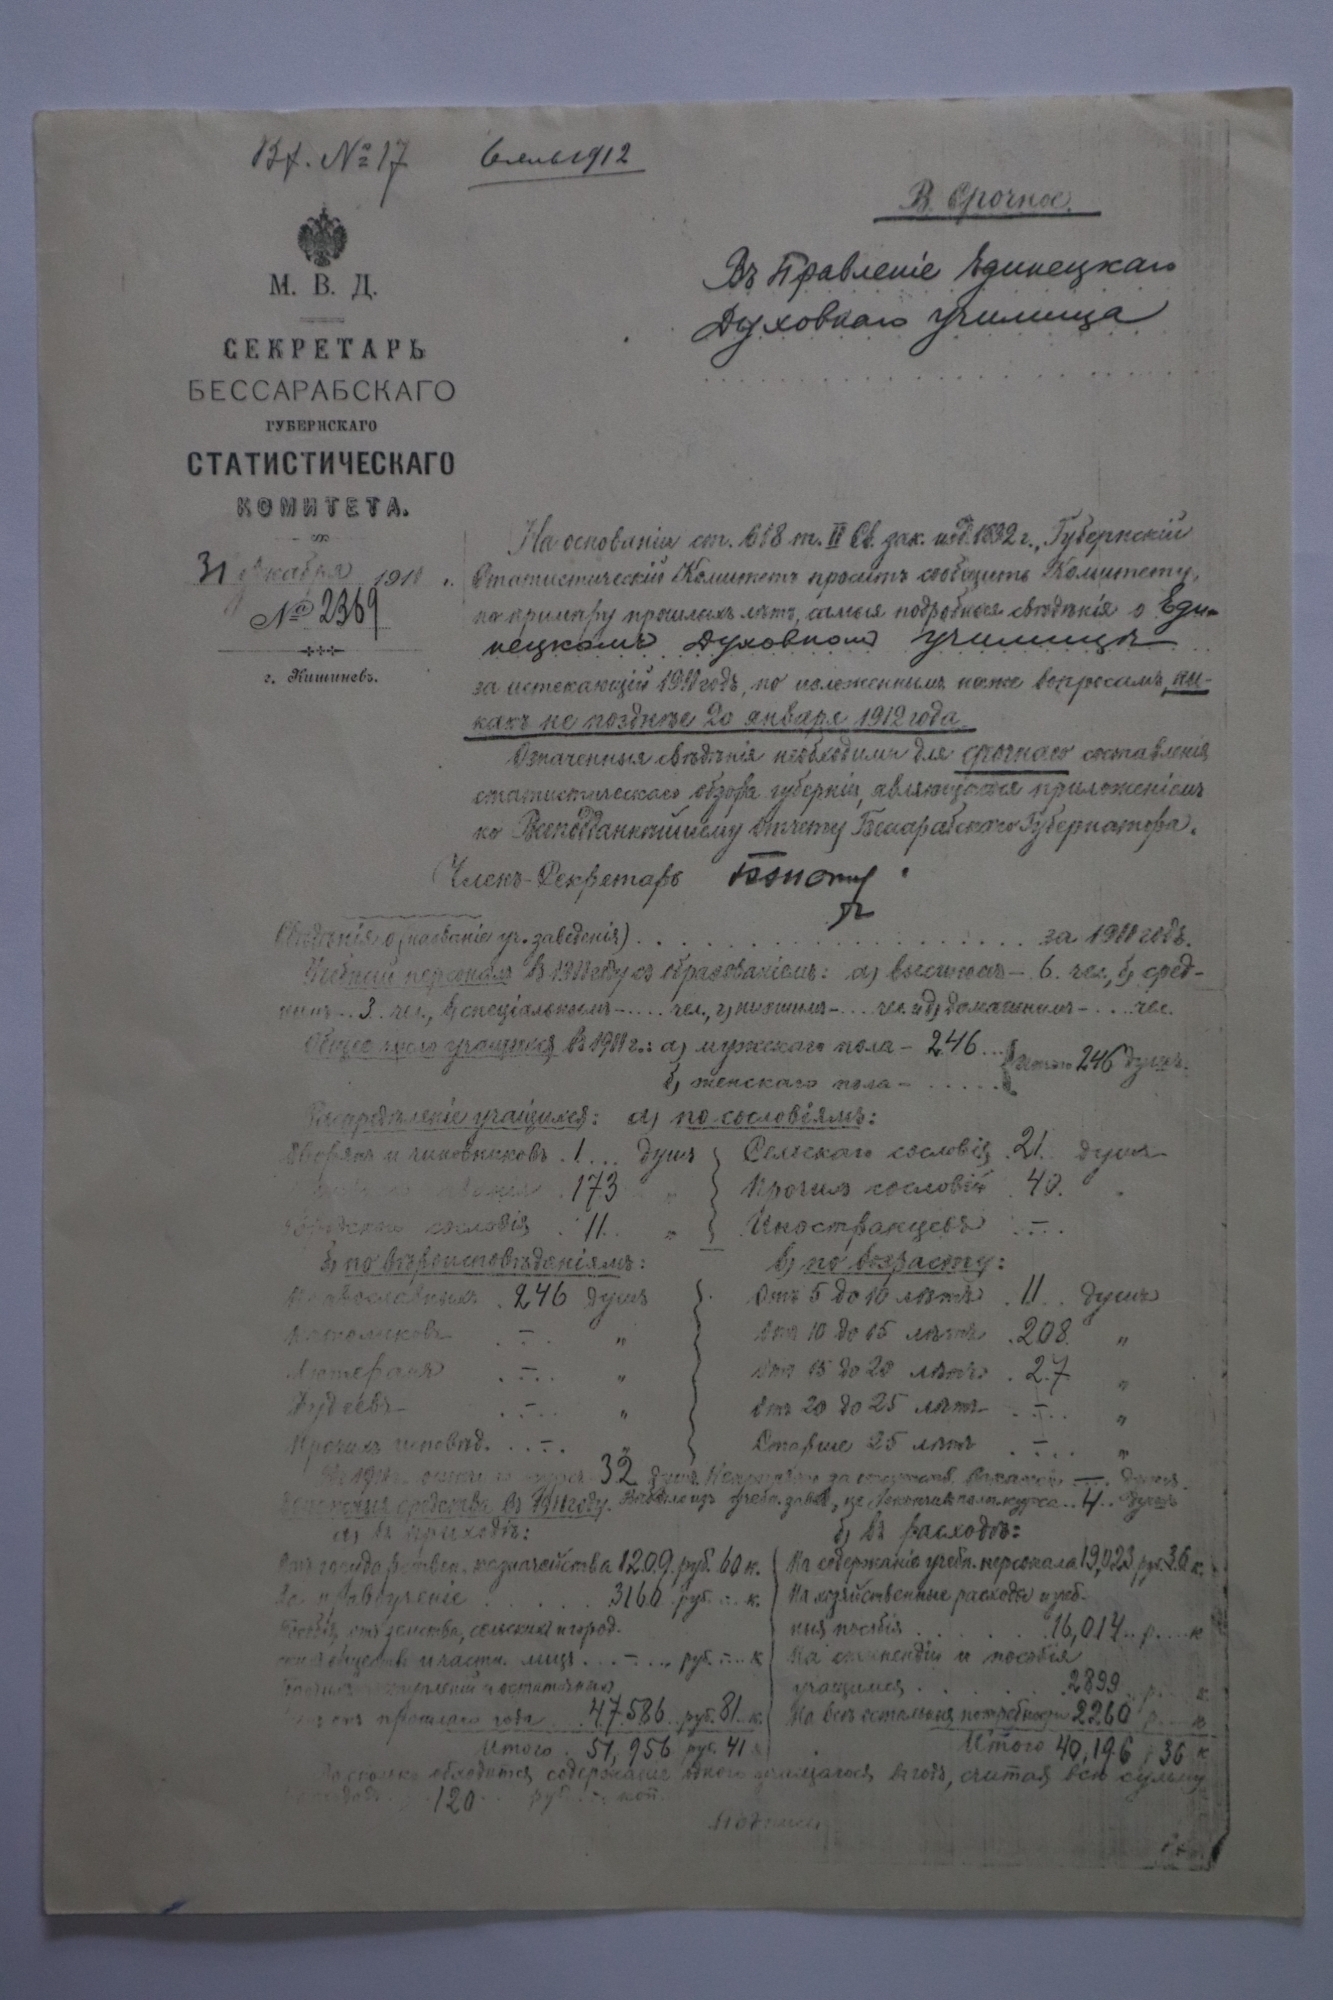 Вх. № 17
1912
В. Срочное.
М. В. Д.
СЕКРЕТАРЬ
БЕССАРАБСКАГО
ГУБЕРНСКАГО
СТАТИСТИЧЕСКАГО
КОМИТЕТА.
31 Декабря 1911 г.
№ 2369
г. Кишиневъ.
Въ Правленіе Единецкаго
Духовнаго училища
На основаніи ст. 618 т. II Св. зак. изд. 1892 г., Губернскій
Статистическій Комитетъ проситъ сообщить Комитету,
по примѣру прошлыхъ лѣтъ, самыя подробныя свѣдѣнія о Еди-
нецкомъ Духовномъ училищѣ
за истекающій 1911 годъ, по изложеннымъ ниже вопросамъ, ни-
какъ не позднѣе 20 января 1912 года.
Означенныя свѣдѣнія необходимы для срочнаго составленія
статистическаго обзора губерніи, являющагося приложеніемъ
ко Всеподданнѣйшему отчету Бессарабскаго Губернатора.
Членъ-Секретарь
Свѣдѣнія о (названіе уч. заведенія) за 1911 годъ.
Учебный персоналъ въ 1911 году съ образованіемъ: а) высшимъ – 6 чел., б) сред-
нимъ – 3 чел., в) спеціальнымъ – чел., г) низшимъ – чел. и д) домашнимъ – чел.
Общее число учащихся въ 1911 г.: а) мужскаго пола – 246 итого 246 душъ.
б) женскаго пола –
Распредѣленіе учащихся: а) по сословіямъ:
Дворянъ и чиновниковъ 1 душъ Сельскаго сословія 21 душъ
званія 173 " Прочихъ сословій 40 "
Городского сословія 11 " Иностранцевъ –
б) по вѣроисповѣданіямъ: в) по возрасту:
Православныхъ 246 душъ Отъ 5 до 10 лѣтъ 11 душъ
Католиковъ – " Отъ 10 до 15 лѣтъ 208 "
Лютеранъ – " Отъ 15 до 20 лѣтъ 27 "
Іудеевъ – " Отъ 20 до 25 лѣтъ – "
Прочихъ исповѣд. – " Старше 25 лѣтъ – "
Въ 1911 г. курсъ 32 душъ за вакансій – душъ
средства въ 1911 году. Выбыло изъ учебн. завед., не окончивъ полн. курса 4 душъ
а) въ приходѣ: б) въ расходѣ:
Отъ государствен. казначейства 1209 руб. 60 к. На содержаніе учебн. персонала 19,023 руб. 36 к.
За правоученіе 3160 руб. – к. На хозяйственные расходы и учеб-
Пособія отъ земства, сельских и город. ныя пособія 16,014 р. к
обществ и частн. лицъ – руб. – к На стипендіи и пособія
поступленій и остаточныхъ учащимся 2899 р. к.
отъ прошлаго года 47.586 руб. 81 к. На всѣ остальныя потребности 2260 р. к
Итого 51,956 руб. 41 к Итого 40,196 р 36 к
обходится содержаніе одного учащагося въ годъ, считая всю сумму
120 руб. – коп.
Подписи